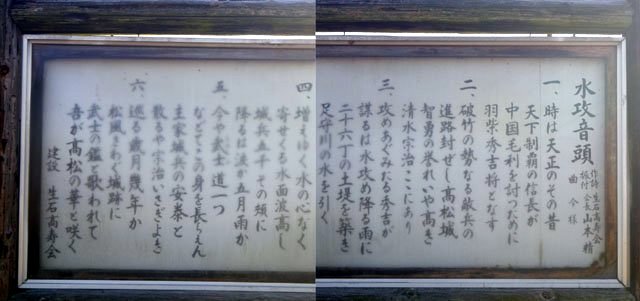 水攻音頭
作詩 生石高寿会
振付 会長 山本 精
曲 今様
一、時は天正のその昔
天下制覇の信長が
中国毛利を討つために
羽柴秀吉将となす
二、破竹の勢なる敵兵の
進路封ぜし高松城
智勇の誉れいや高き
清水宗治ここにあり
三、攻めあぐみたる秀吉が
謀るは水攻め降る雨に
二十六丁の土堤を築き
足守川の水を引く
四、増えゆく水の心なく
寄せる水面波高し
城兵五千その頬に
降るは涙か五月雨か
五、今や武士道一つ
などてこの身を長らえん
主家城兵の安泰と
散るや宗治いさぎよき
六、巡る歳月幾年か
松風さわぐ城跡に
武士の鑑と歌われて
吾が高松の華と咲く
建設 生石高寿会